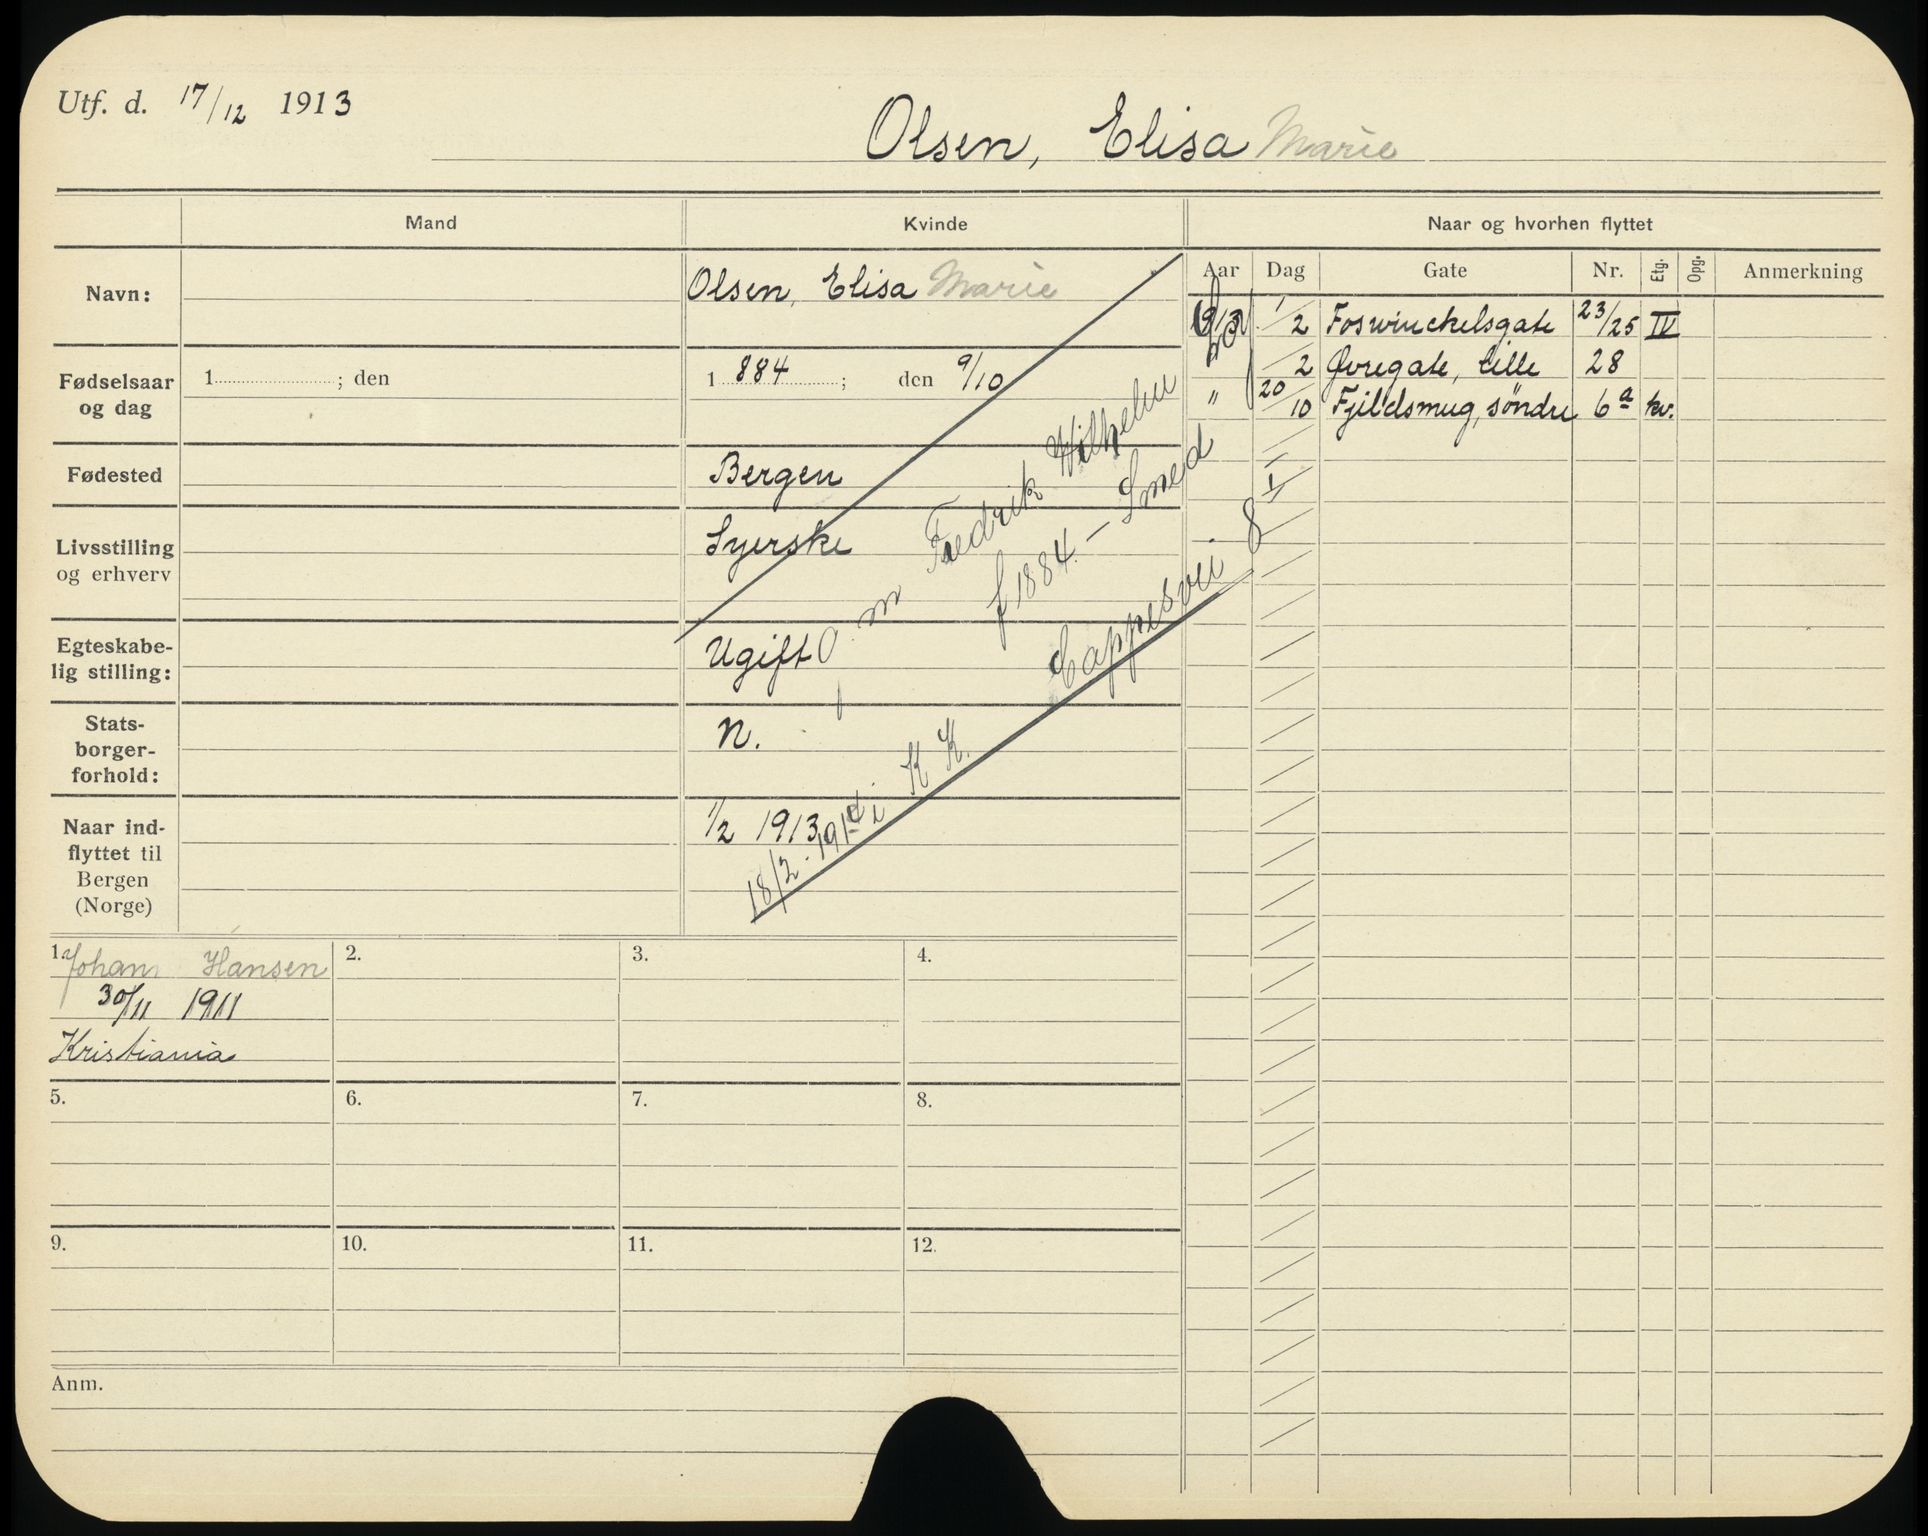 Utf. d. 17/12 1913
Olsen, Elisa Marie
Mand
Kvinde
Naar og hvorhen flyttet
Aar Dag Gate Nr. Etg. Opg. Anmerkning
Navn:
Olsen, Elisa Marie
Fødselsaar og dag
1 ; den
1 884 ; den 9/10
Fødested
Bergen
Livsstilling og erhverv
Syerske
Egteskabe-
lig stilling:
Ugift
Stats-
borger-
forhold:
N.
Naar ind-
flyttet til
Bergen
(Norge)
1/2 1913
O m Fredrik Wilhelm
f 1884 - Smed
18/2. 1914 i K K. Cappesvei 8 I
1913 1/2 Foswinckelsgate 23/25 IV
/2 Øvregate, lille 28
" 20/10 Fjeldsmug, søndre 6a kv.
1. Johan Hansen
30/11 1911
Kristiania
2.
3.
4.
5.
6.
7.
8.
9.
10.
11.
12.
Anm.